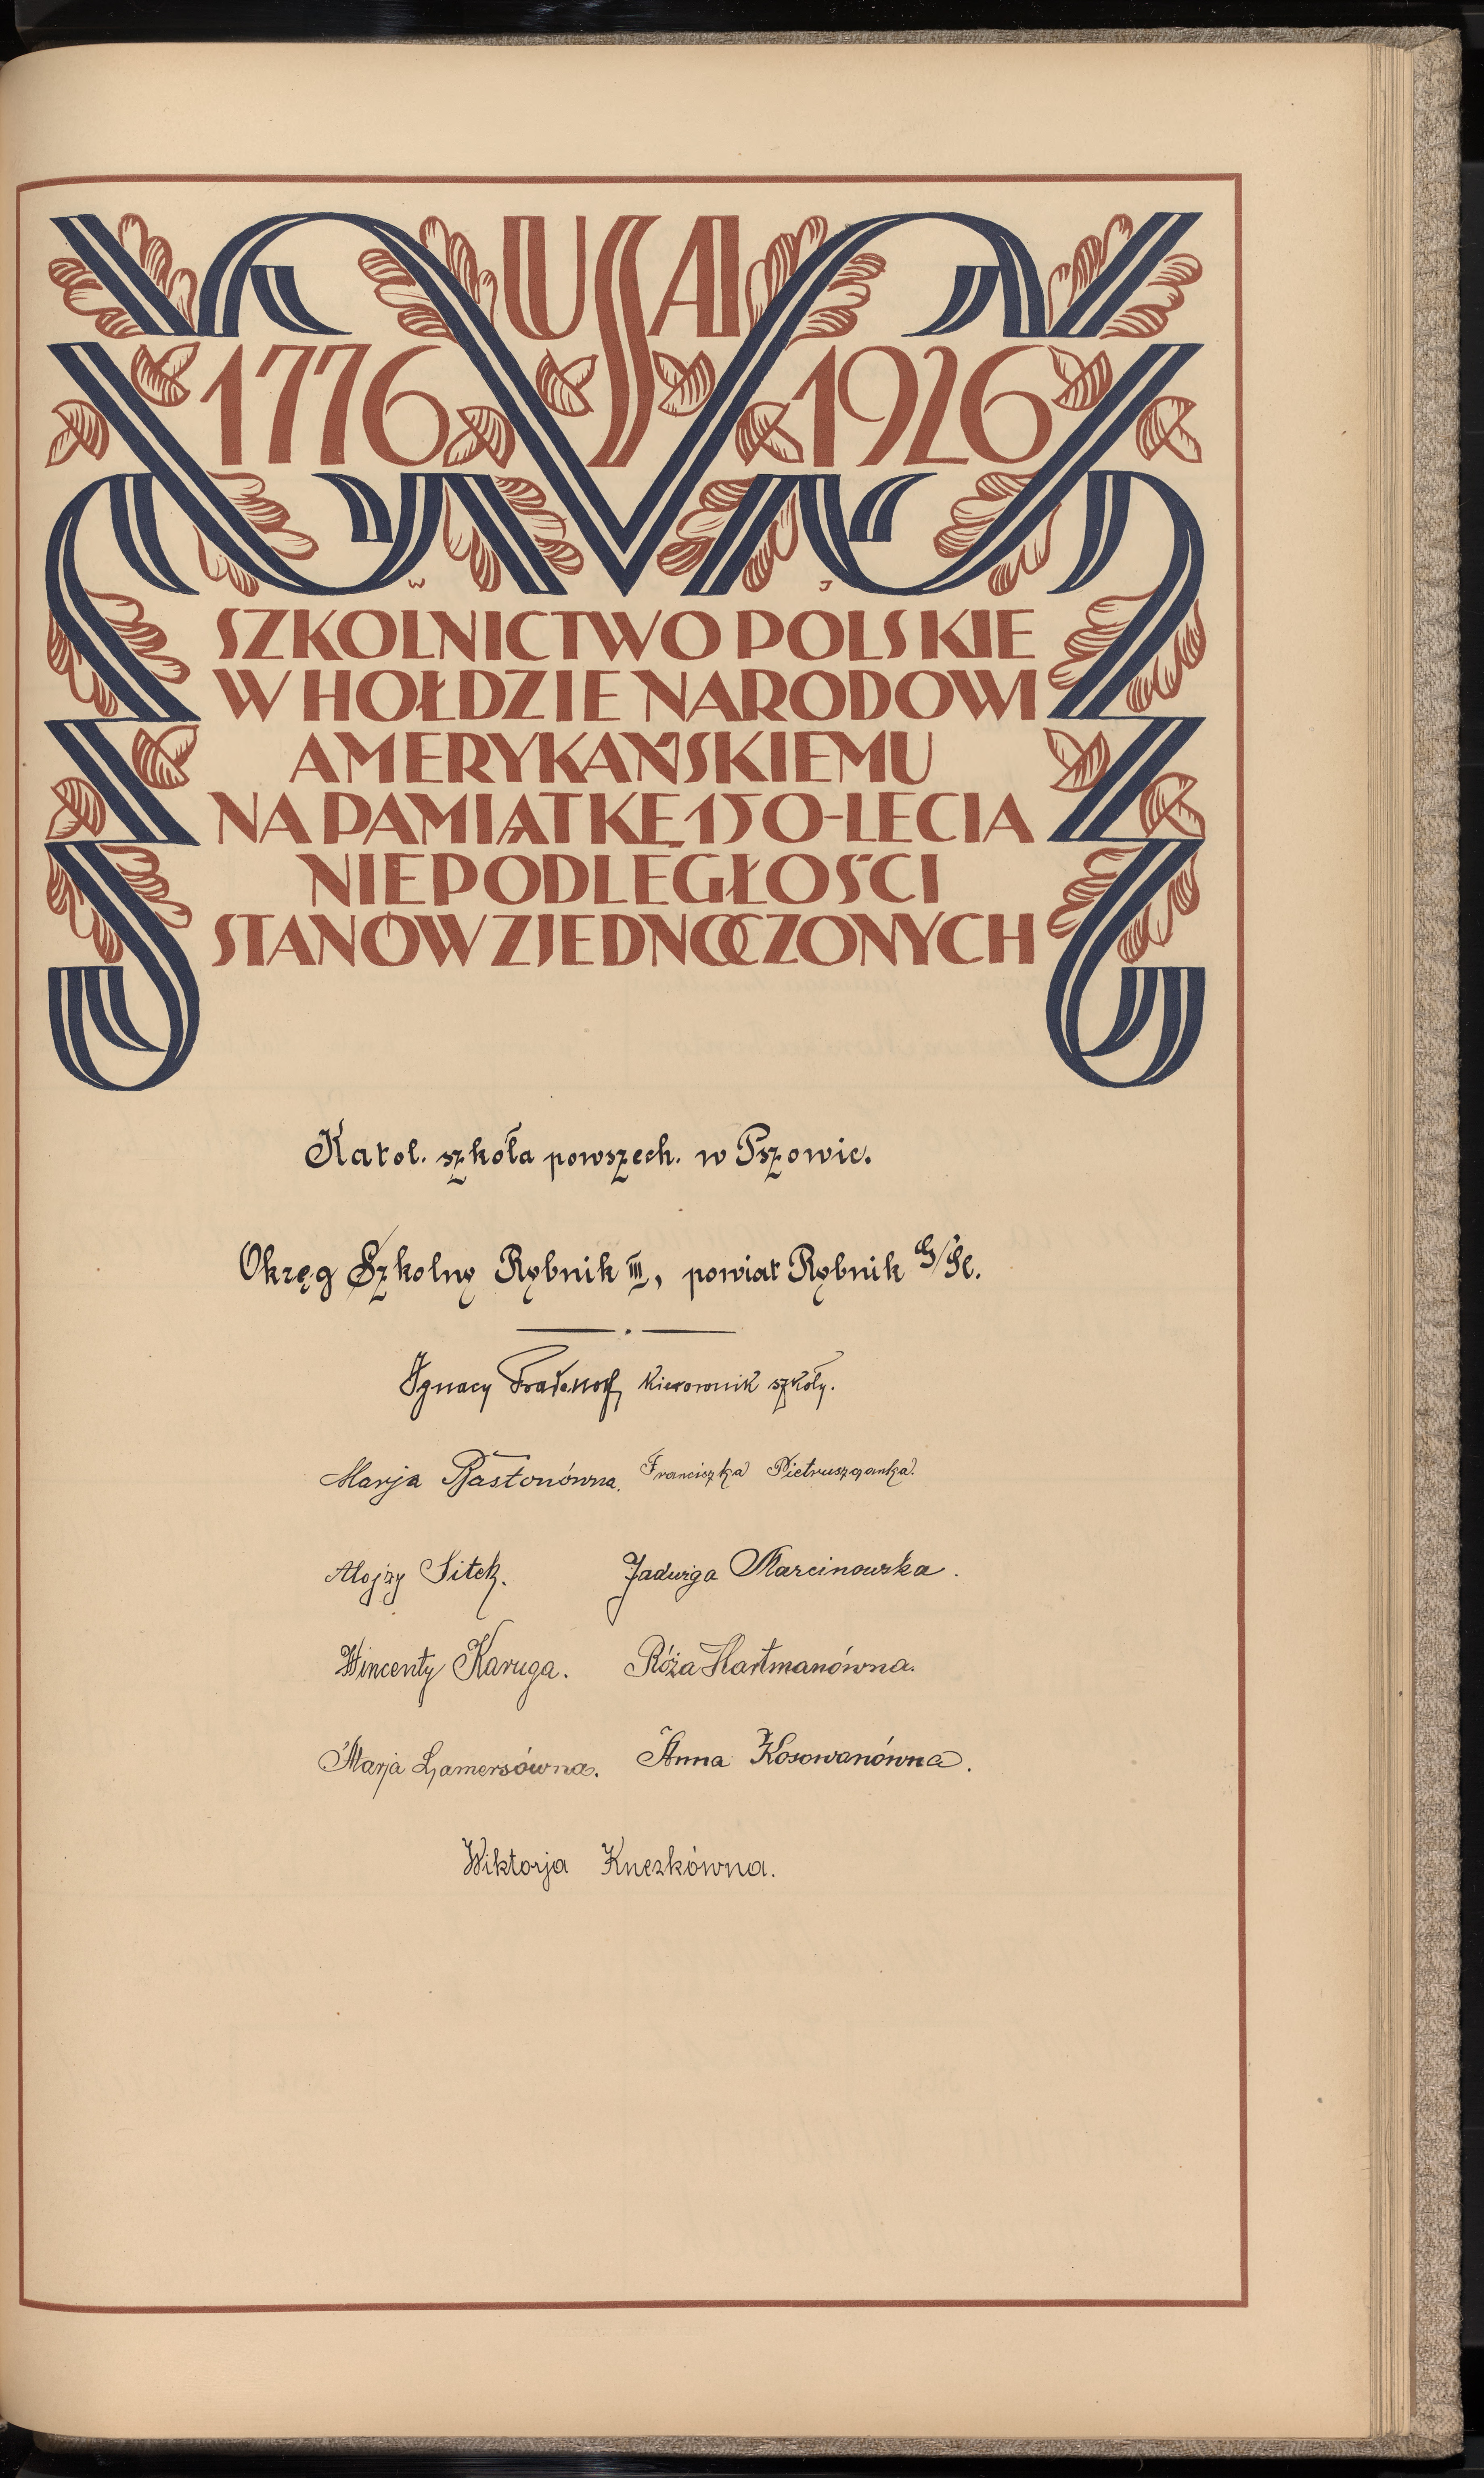 USA
1776 1926
W J
SZKOLNICTWO POLSKIE
W HOŁDZIE NARODOWI
AMERYKAŃSKIEMU
NA PAMIĄTKĘ 150-LECIA
NIEPODLEGŁOŚCI
STANÓW ZJEDNOCZONYCH
Katol. szkoła powszech. w Pszowie.
Okręg Szkolny Rybnik III, powiat Rybnik G/Śl.
Ignacy kierownik szkoły.
Marja Bastonówna. Franciszka Pietruszczanka.
Alojzy Sitek. Jadwiga Marcinowska.
Wincenty Karuga. Róża Hartmanówna.
Marja Lamersówna. Anna Kosowanówna.
Wiktorja Knezkówna.